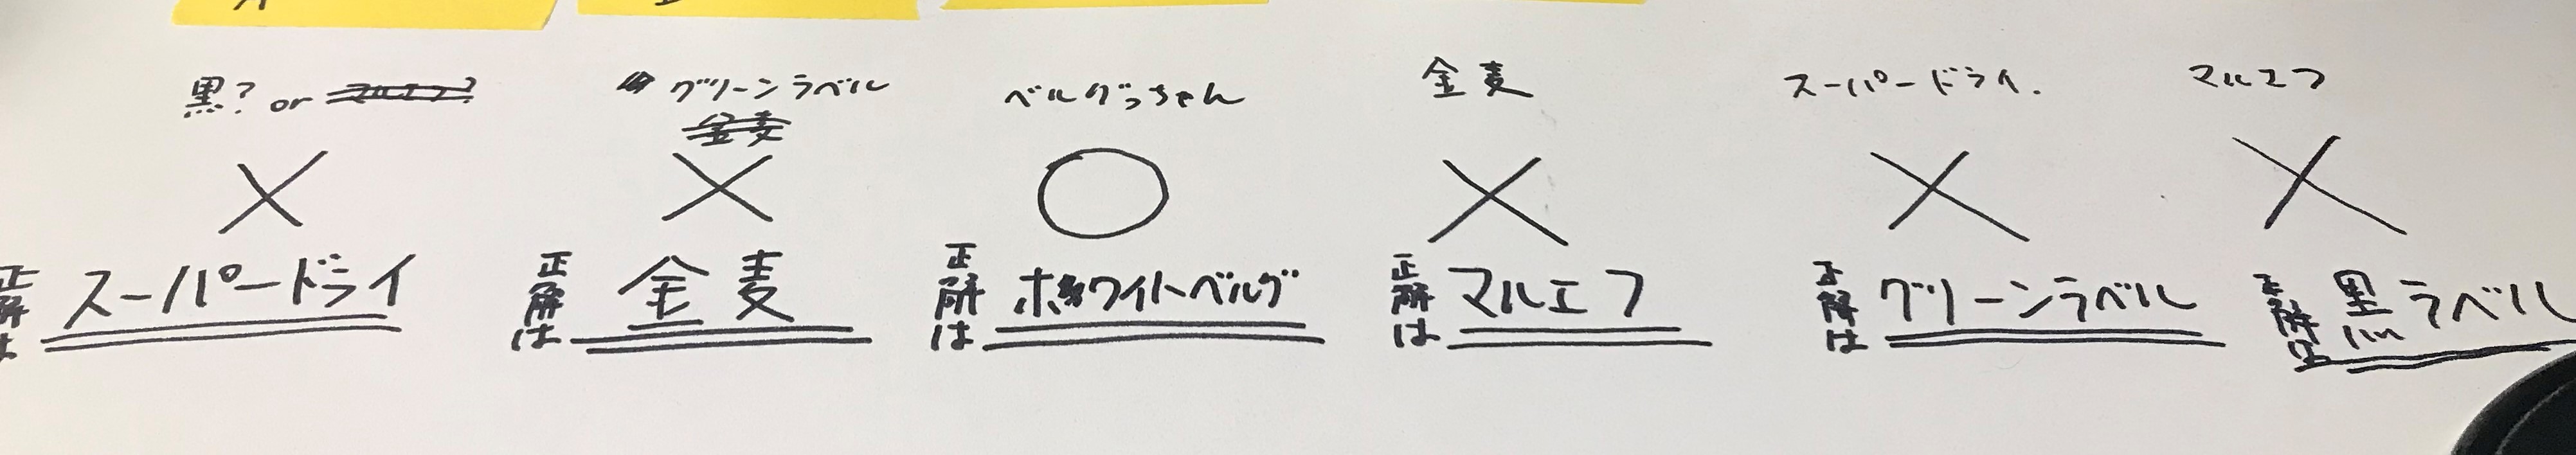 黒? or マルエフ?
グリーンラベル
金麦
ベルグっちゃん
金麦
スーパードライ.
マルエフ
×
×
○
×
×
×
正解は スーパードライ
正解は 金麦
正解は ホワイトベルグ
正解は マルエフ
正解は グリーンラベル
正解は 黒ラベル